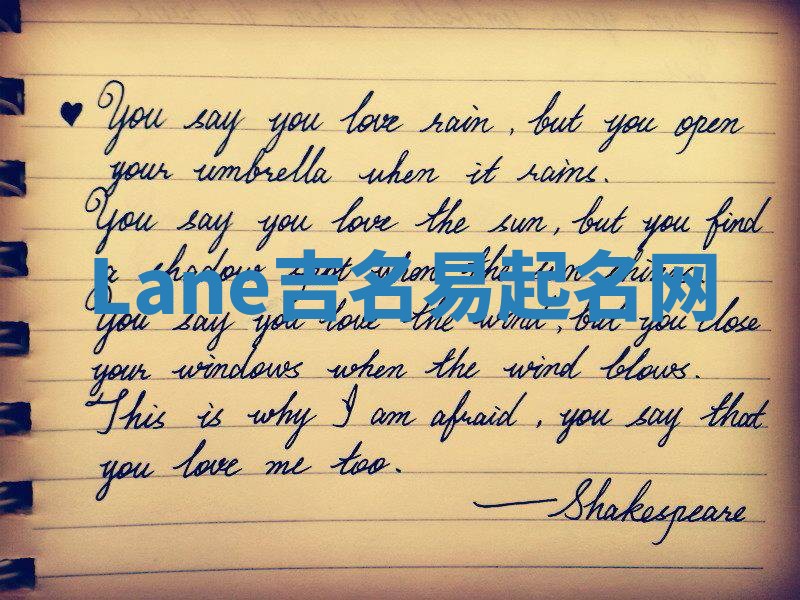 ♥ You say you love rain, but you open
your umbrella when it rains.
You say you love the sun, but you find
a shadow spot when the sun shines.
Lane吉名易起名网
You say you love the wind, but you close
your windows when the wind blows.
This is why I am afraid, you say that
you love me too.
—Shakespeare